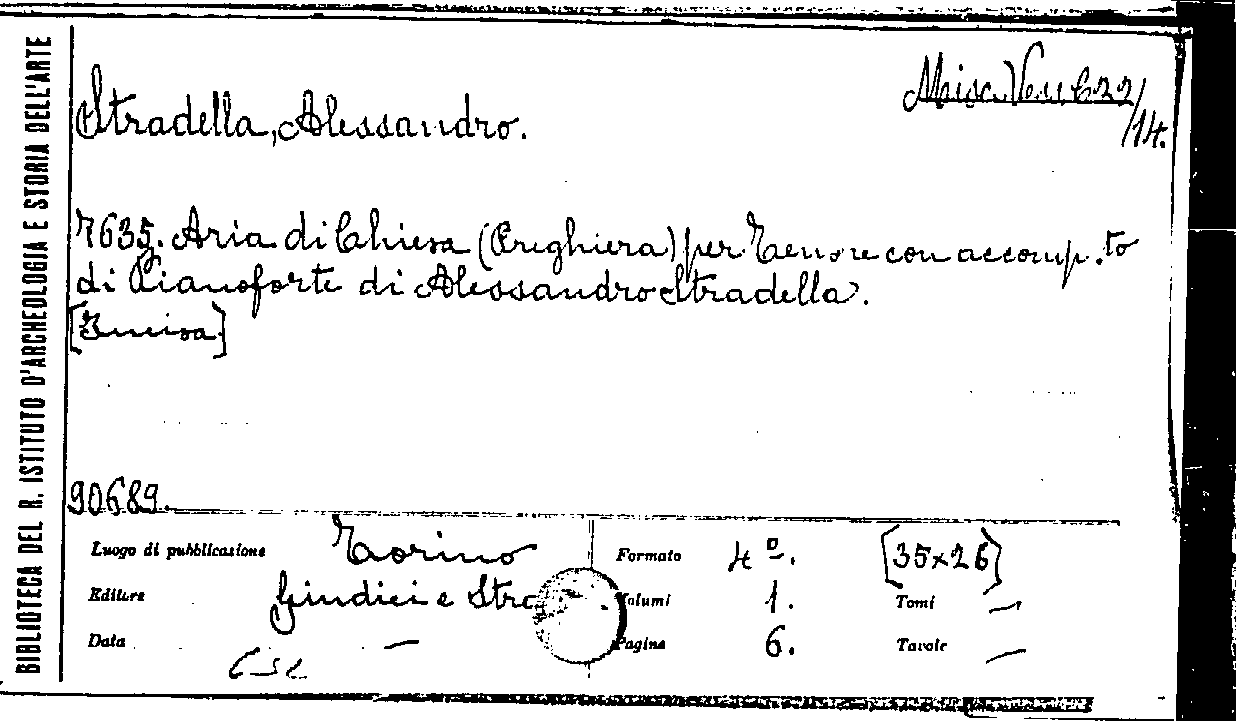 BIBLIOTECA DEL R. ISTITUTO D'ARCHEOLOGIA E STORIA DELL'ARTE
Misc. Ven. 622/14.
Stradella, Alessandro.
7635. Aria di Chiesa (Preghiera) per Tenore con accomp.to
di Pianoforte di Alessandro Stradella.
[Incisa]
90689.
Luogo di pubblicazione Torino
Editore Giudici e Stra
Data —
Formato 4º. [35×26]
Volumi 1. Tomi —
Pagine 6. Tavole —